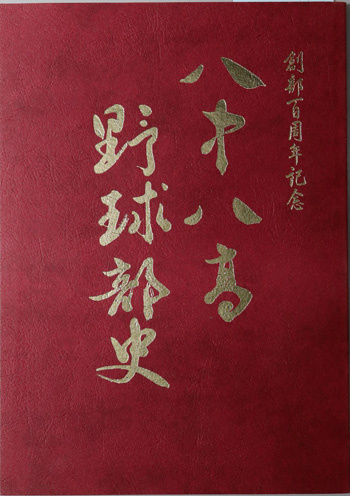 創部百周年記念
八中八高
野球部史